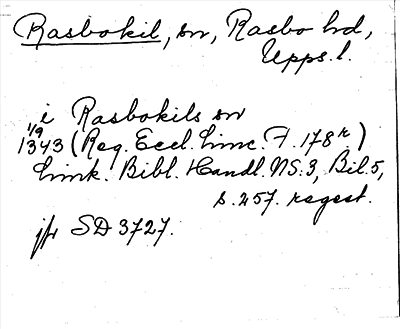 Rasbokil, sn, Rasbo hd,
Upps. l.
i Rasbokils sn
1/9
1343 (Reg. Eccl. Linc. F. 178r)
Link. Bibl. Handl. NS. 3, Bil. 5,
s. 257. regest.
jfr SD 3727.